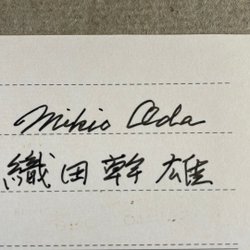 Mikio Oda
織田幹雄